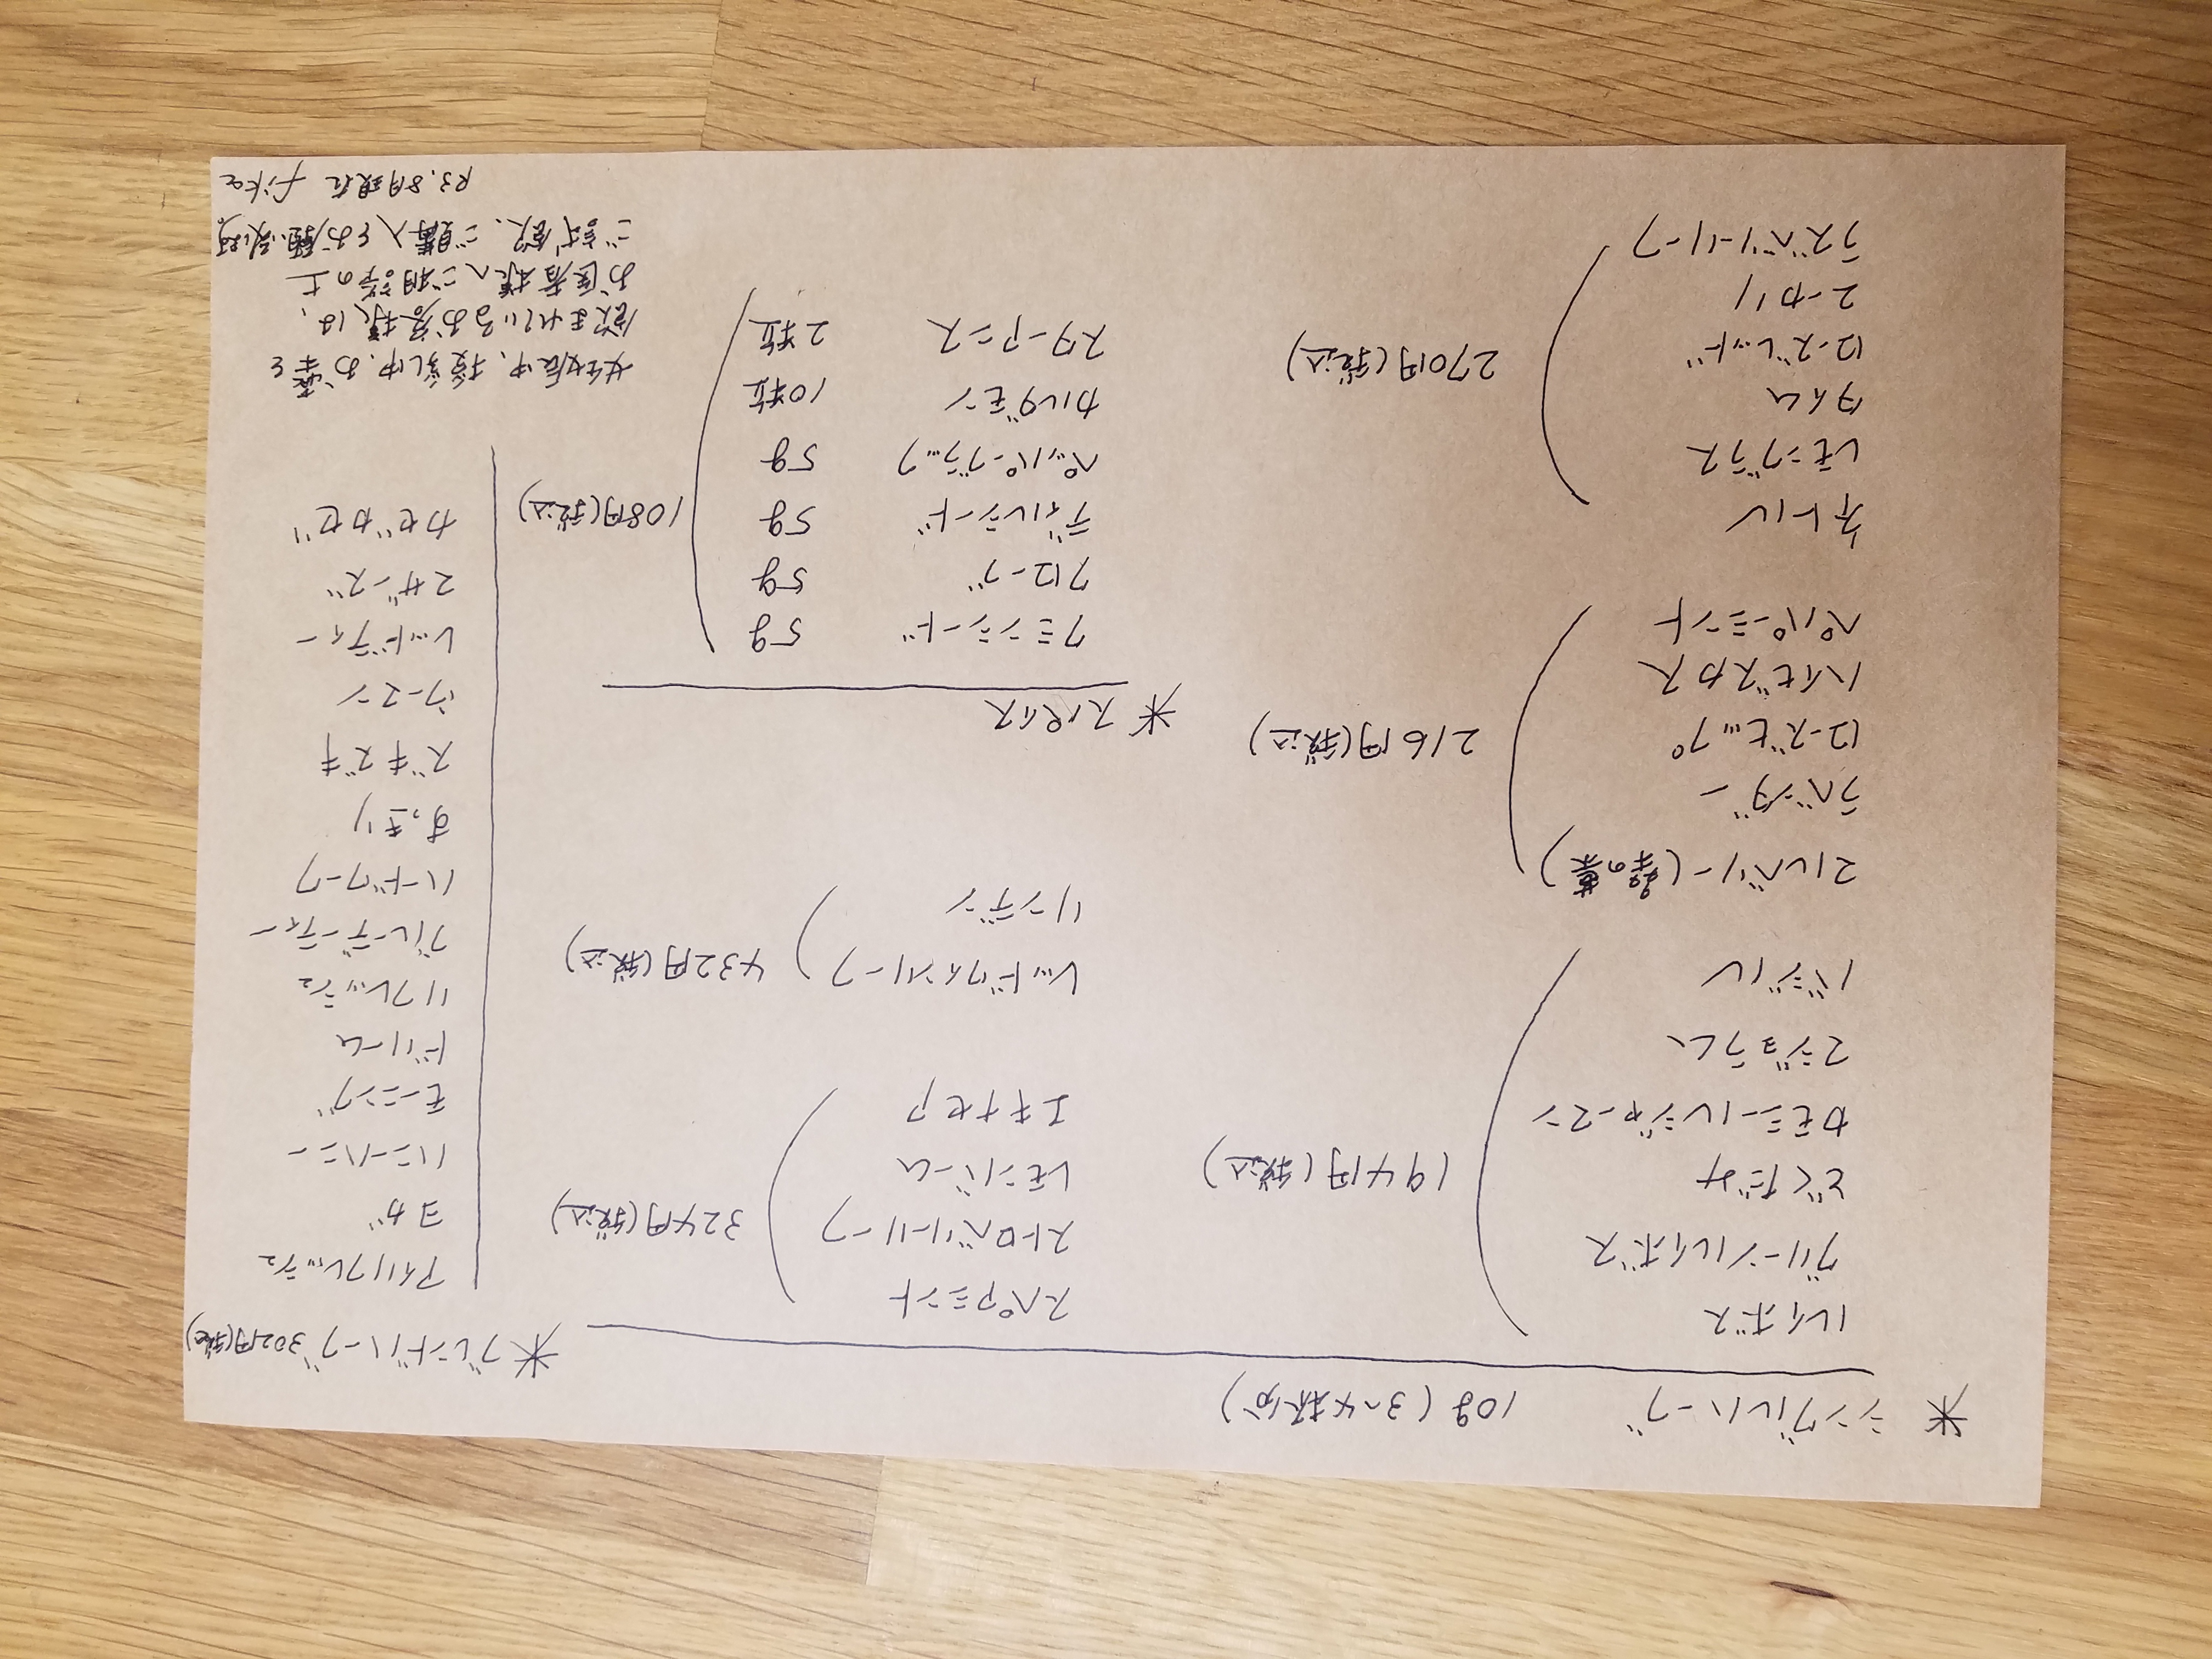 ＊シングルハーブ 10g(3〜4杯分)
ルイボス
グリーンルイボス
どくだみ
カモミールジャーマン
マジョラム
バジル
194円(税込)
マルベリー(桑の葉)
ラベンダー
ローズヒップ
ハイビスカス
ペパーミント
216円(税込)
ネトル
レモングラス
タイム
ローズレッド
ユーカリ
ラズベリーリーフ
270円(税込)
スペアミント
ストロベリーリーフ
レモンバーム
エキナセア
324円(税込)
レッドワインリーフ
リンデン
432円(税込)
＊スパイス
クミンシード 5g
クローブ 5g
ディルシード 5g
ペッパーブラック 5g
カルダモン 10粒
スターアニス 2粒
108円(税込)
＊ブレンドハーブ 302円(税込)
アイリフレッシュ
ヨガ
ハニーハニー
モーニング
ドリーム
リフレッシュ
ブルーデーティー
ハードワーク
すっきり
ズキズキ
ウーマン
レッドティー
マザーズ
カゼカゼ
妊娠中、授乳中、お薬を
飲まれているお客様は、
お医者様へご相談の上
ご試飲、ご購入をお願い致します。
R3.8月現在 fika